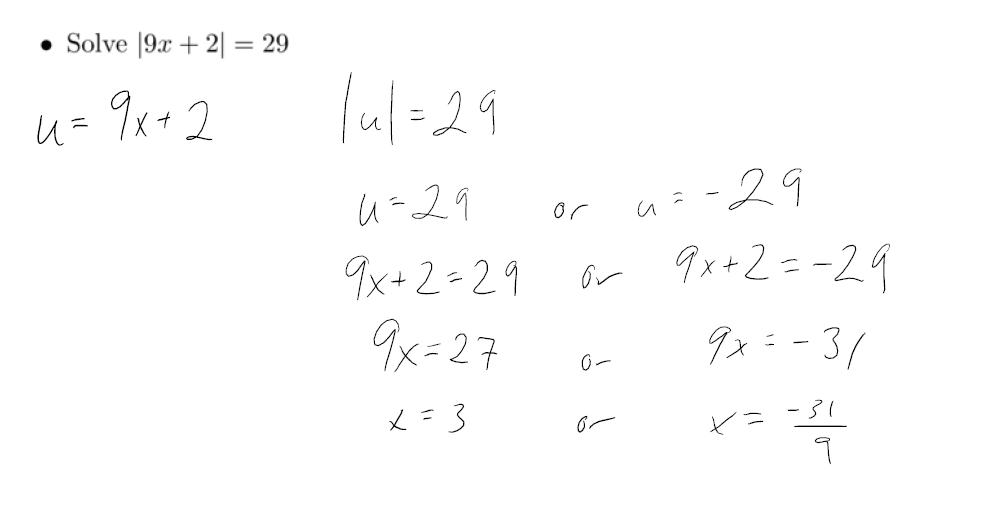 • Solve |9x + 2| = 29
u = 9x + 2 |u| = 29
u = 29 or u = -29
9x + 2 = 29 or 9x + 2 = -29
9x = 27 or 9x = -31
x = 3 or x = -31/9